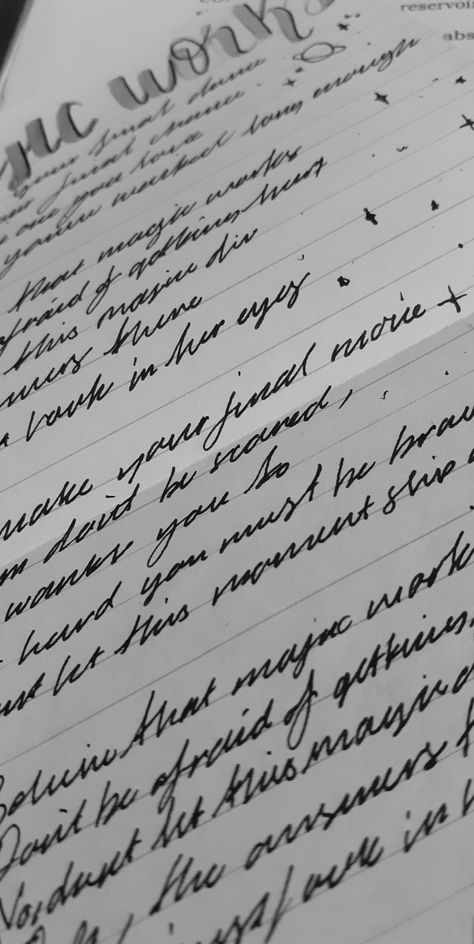 reservoi
abs
ic work
your final dance
final chance
one good love
you've waited long enough
that magic works
afraid of getting hurt
this magic die
there
look in her eyes
make your final move
don't be scared,
wants you to
hard you must be brav
let this moment slip a
Believe that magic work
Don't be afraid of getting
No, don't let this magic d
Oh, the answers t
just look in h